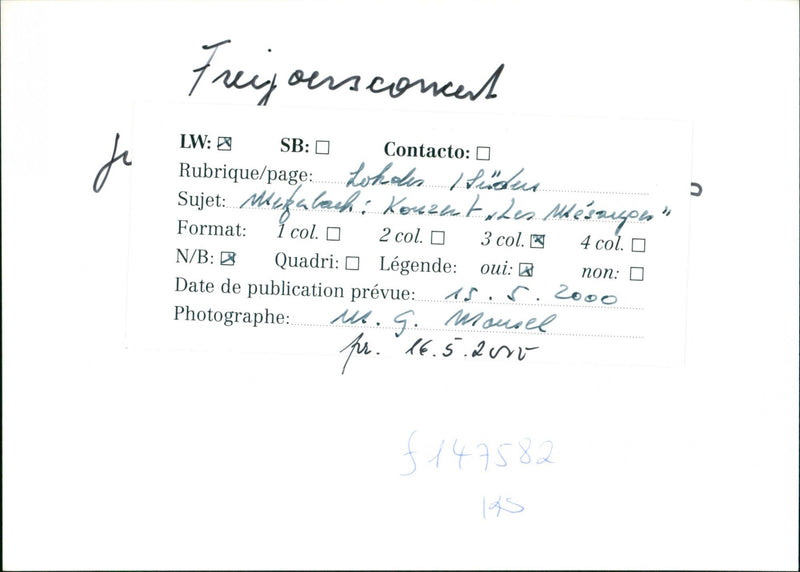 Freijoersconcert
LW: ☒ SB: ☐ Contacto: ☐
Rubrique/page: Lokales / Süden
Sujet: Metzerlach: Konzert „Les Mésanges"
Format: 1 col. ☐ 2 col. ☐ 3 col. ☒ 4 col. ☐
N/B: ☒ Quadri: ☐ Légende: oui: ☒ non: ☐
Date de publication prévue: 15. 5. 2000
Photographe: M. G. Mousel
pr. 16.5.2000
f147582